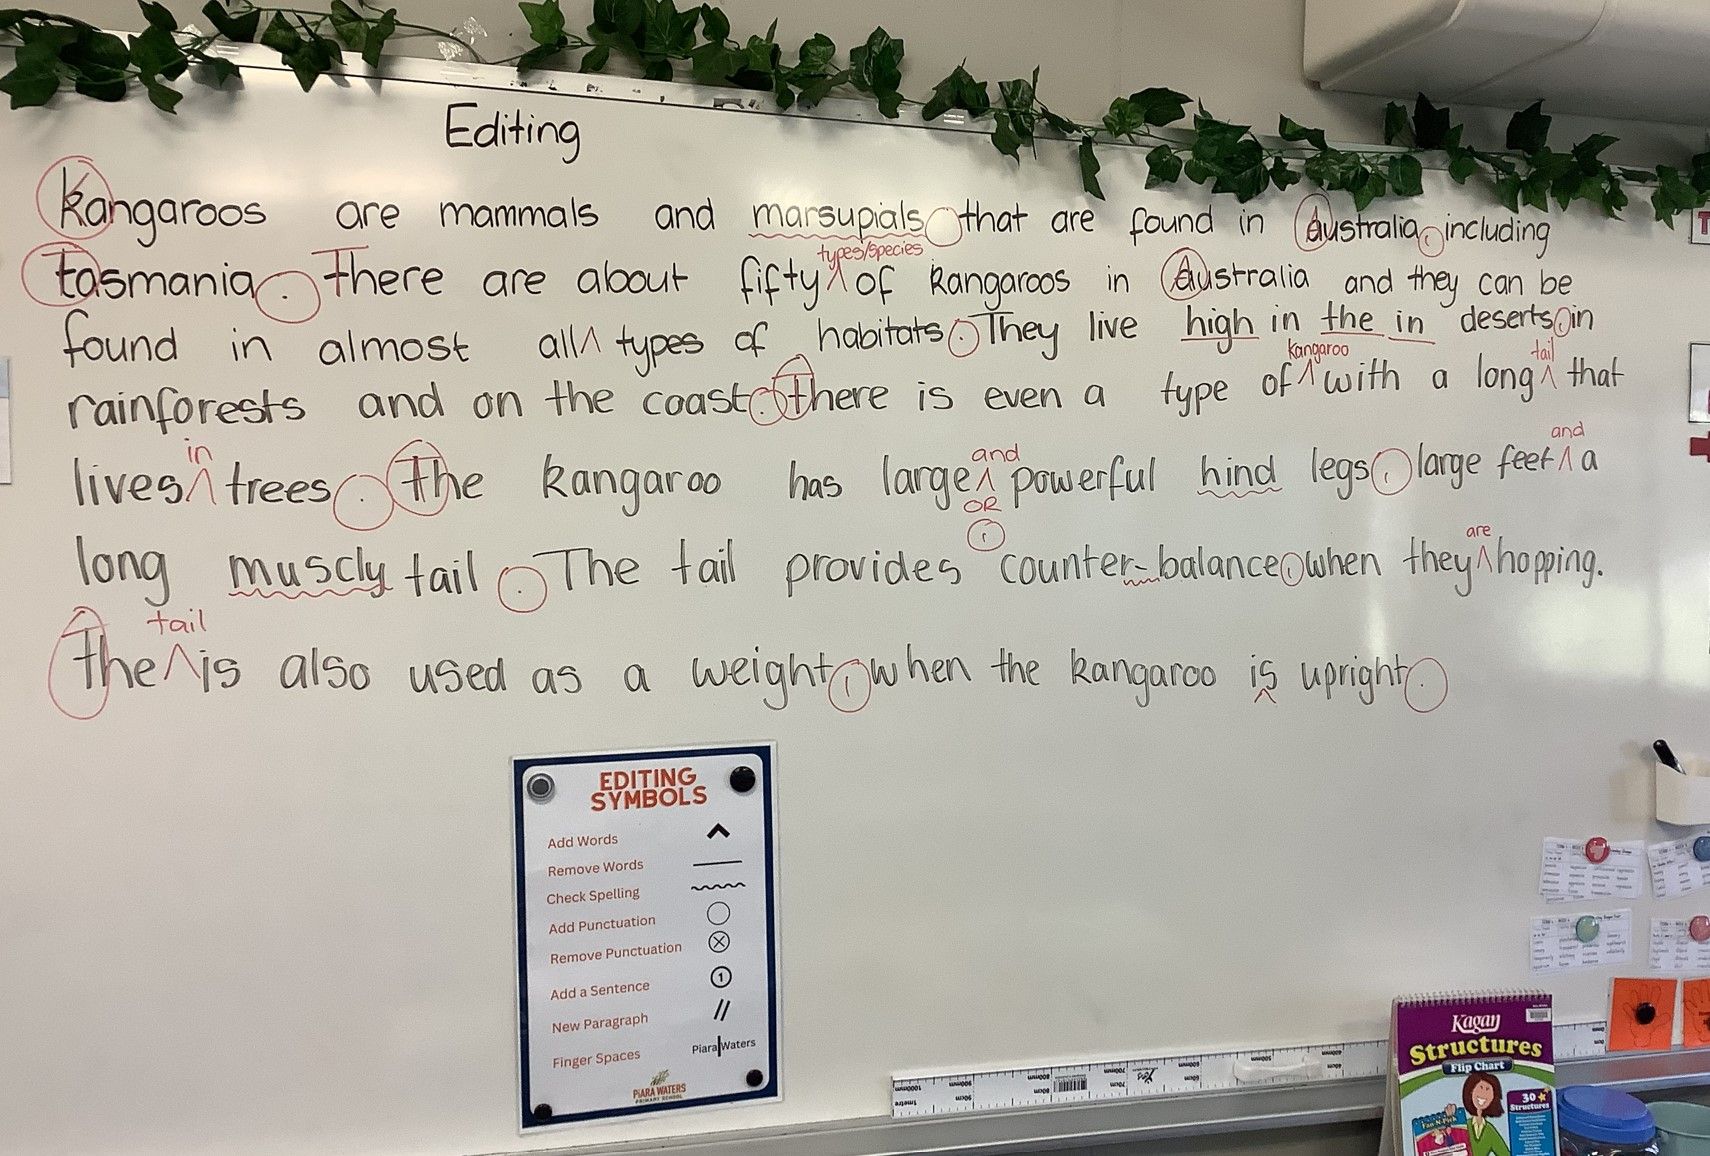 Editing
Kangaroos are mammals and marsupials that are found in Australia, including
types/species
Tasmania. There are about fifty ^ of kangaroos in Australia and they can be
found in almost all ^ types of habitats. They live high in the in deserts, in
kangaroo tail
rainforests and on the coast. There is even a type of ^ with a long ^ that
in and and
lives ^ trees. The kangaroo has large ^ powerful hind legs, large feet ^ a
OR
,
are
long muscly tail. The tail provides counter-balance, when they ^ hopping.
tail
The ^ is also used as a weight, when the kangaroo is upright.
^
EDITING
SYMBOLS
Add Words
Remove Words
Check Spelling
Add Punctuation
Remove Punctuation
Add a Sentence 1
New Paragraph //
Finger Spaces Piara|Waters
PIARA WATERS
PRIMARY SCHOOL
Kagan
Structures
Flip Chart
30
Structures